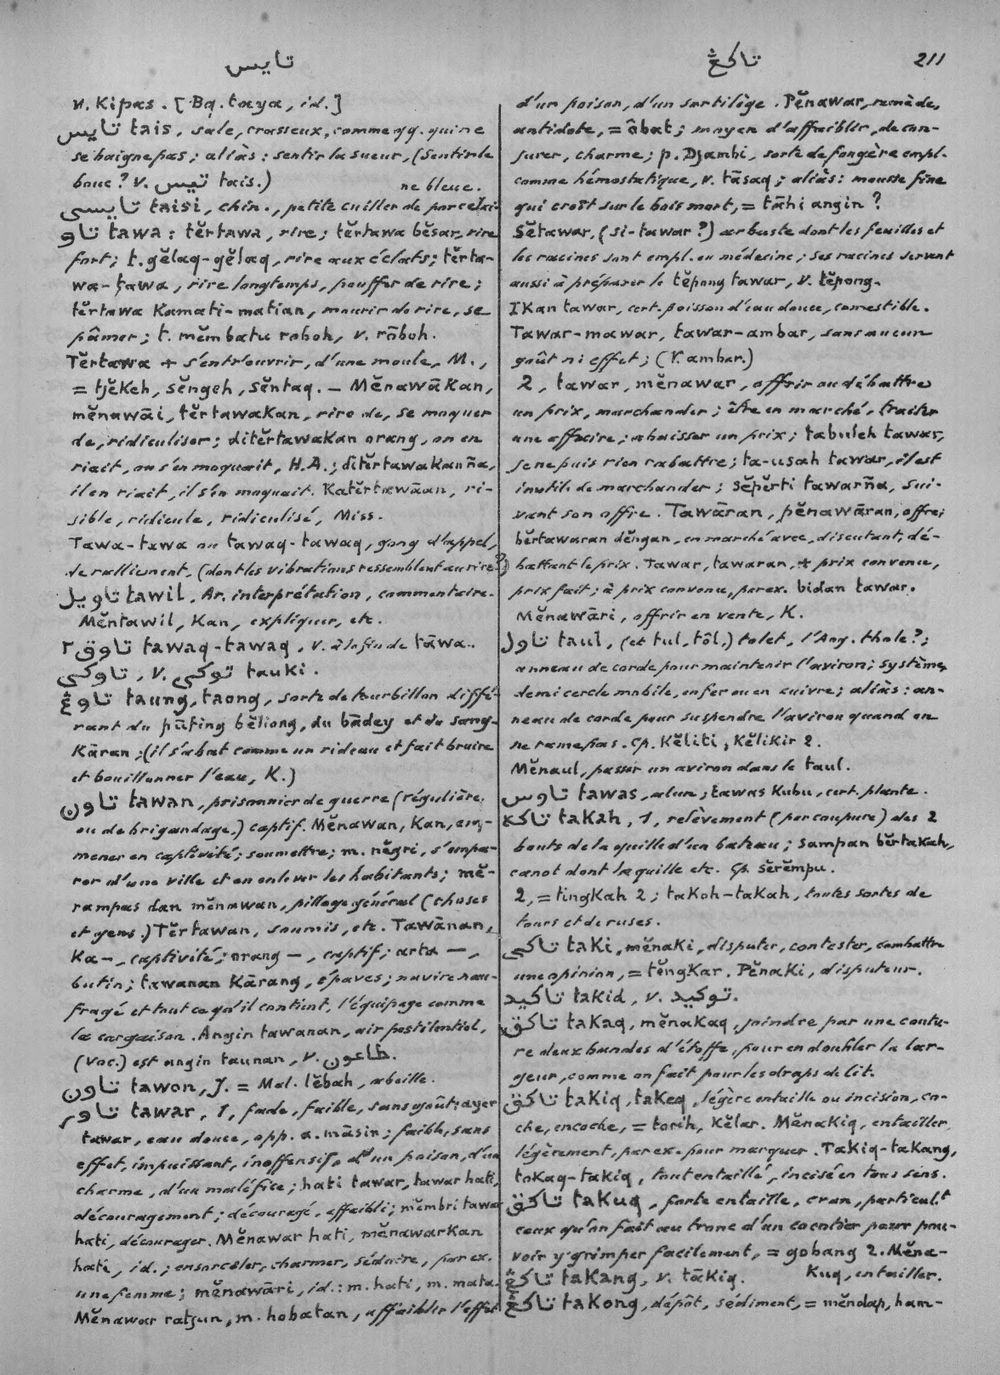 تايس
تاكڠ
211
v. Kipas. [Bq. taya, id.]
تايس tais, sale, crasseux, comme qq. qui ne
se baigne pas; aliàs: sentir la sueur, (sentir le
bouc? v. تيس tais.)
تايسى taisi, chin., petite cuiller de porcelai-
ne bleue.
تاو tawa: tĕrtawa, rire; tĕrtawa bĕsar, rire
fort; t. gĕlaq-gĕlaq, rire aux éclats; tĕrta-
wa-tawa, rire longtemps, pouffer de rire;
tĕrtawa Kamati-matian, mourir de rire, se
pâmer; t. mĕmbatu roboh, v. rāboh.
Tĕrtawa + s'entr'ouvrir, d'une moule, M.,
= tjĕkeh, sĕngeh, sĕntaq. — MĕnawāKan,
mĕnawāi, tĕrtawaKan, rire de, se moquer
de, ridiculiser; ditĕrtawaKan orang, on en
riait, on s'en moquait, H.A.; ditĕrtawaKanña,
il en riait, il s'en moquait. Katĕrtawāan, ri-
sible, ridicule, ridiculisé, Miss.
Tawa-tawa ou tawaq-tawaq, gong d'appel,
de ralliement, (dont les vibrations ressemblent au rire?)
تاويل tawil, Ar. interprétation, commentaire.
Mĕntawil, Kan, expliquer, etc.
تاوق٢ tawaq-tawaq, v. à la fin de tāwa.
تاوكى, v. توكى tauki.
تاوڠ taung, taong, sorte de tourbillon diffé-
rant du pūting bĕliong, du bādey et du sang-
Kāran; (il s'abat comme un rideau et fait bruire
et bouillonner l'eau, K.)
تاون tawan, prisonnier de guerre (régulière
ou de brigandage.) captif. Mĕnawan, Kan, em-
mener en captivité; soumettre; m. nĕgri, s'empa-
rer d'une ville et en enlever les habitants; mĕ-
rampas dan mĕnawan, pillage général (choses
et gens.) Tĕrtawan, soumis, etc. Tawānan,
Ka—, captivité; orang —, captif; arta —,
butin; tawanan Kārang, épaves; navire nau-
fragé et tout ce qu'il contient, l'équipage comme
la cargaison. Angin tawanan, air pestilentiel,
(Voc.) est angin taunan, v. طاعون.
تاون tawon, J. = Mal. lĕbah, abeille.
تاور tawar, 1, fade, faible, sans goût; ayer
tawar, eau douce, opp. a. māsin; faible, sans
effet, impuissant, inoffensif, d'un poison, d'un
charme, d'un maléfice; hati tawar, tawar hati,
découragement; découragé, affaibli; mĕmbri tawar
hati, décourager. Mĕnawar hati, mĕnawarKan
hati, id.; ensorceler, charmer, séduire, par ex.
une femme; mĕnawāri, id.: m. hati, m. mata.
Mĕnawar ratjun, m. hobatan, affaiblir l'effet
d'un poison, d'un sortilège. Pĕnawar, remède,
antidote, = ôbat; moyen d'affaiblir, de con-
jurer, charme; p. Djambi, sorte de fougère empl.
comme hémostatique, v. tāsaq; aliàs: mousse fine
qui croît sur le bois mort, = tāhi angin?
Sĕtawar, (si-tawar?) arbuste dont les feuilles et
les racines sont empl. en médecine; ses racines servent
aussi à préparer le tĕpong tawar, v. tĕpong.
IKan tawar, cert. poisson d'eau douce, comestible.
Tawar-mawar, tawar-ambar, sans aucun
goût ni effet; (V. ambar.)
2, tawar, mĕnawar, offrir ou débattre
un prix, marchander; être en marché, traiter
une affaire; abaisser un prix; tabuleh tawar,
je ne puis rien rabattre; ta-usah tawar, il est
inutile de marchander; sĕpĕrti tawarña, sui-
vant son offre. Tawāran, pĕnawāran, offre;
bĕrtawaran dĕngan, en marché avec, discutant, dé-
battant le prix. Tawar, tawaran, + prix convenu,
prix fait; à prix convenu, par ex. bidan tawar.
Mĕnawāri, offrir en vente, K.
تاول taul, (et tul, tôl.) tolet, l'Ang. thole?;
anneau de corde pour maintenir l'aviron; système
demi cercle mobile, en fer ou en cuivre; aliàs: an-
neau de corde pour suspendre l'aviron quand on
ne rame pas. Cp. Kĕliti, KĕliKir 2.
Mĕnaul, passer un aviron dans le taul.
تاوس tawas, alun; tawas Kubu, cert. plante.
تاكه taKah, 1, relèvement (par coupure) des 2
bouts de la quille d'un bateau; sampan bĕrtaKah,
canot dont la quille etc. Cp. sĕrĕmpu.
2, = tingKah 2; taKoh-taKah, toutes sortes de
tours et de ruses.
تاكى taKi, mĕnaKi, disputer, contester, combattre
une opinion, = tĕngKar. PĕnaKi, disputeur.
تاكيد taKid, v. توكيد.
تاكق taKaq, mĕnaKaq, joindre par une coutu-
re deux bandes d'étoffe, pour en doubler la lar-
geur, comme on fait pour les draps de lit.
تاكق taKiq, taKeq, légère entaille ou incision, co-
che, encoche, = torih, Kĕlar. MĕnaKiq, entailler
légèrement, par ex. pour marquer. TaKiq-taKang,
taKaq-taKiq, tout entaillé, incisé en tous sens.
تاكق taKuq, forte entaille, cran, particult
ceux qu'on fait au tronc d'un cocotier pour pou-
voir y grimper facilement, = gobang 2. Mĕna-
Kuq, entailler.
تاكڠ taKang, v. tāKiq.
تاكڠ taKong, dépôt, sédiment, = mĕndap, ham-